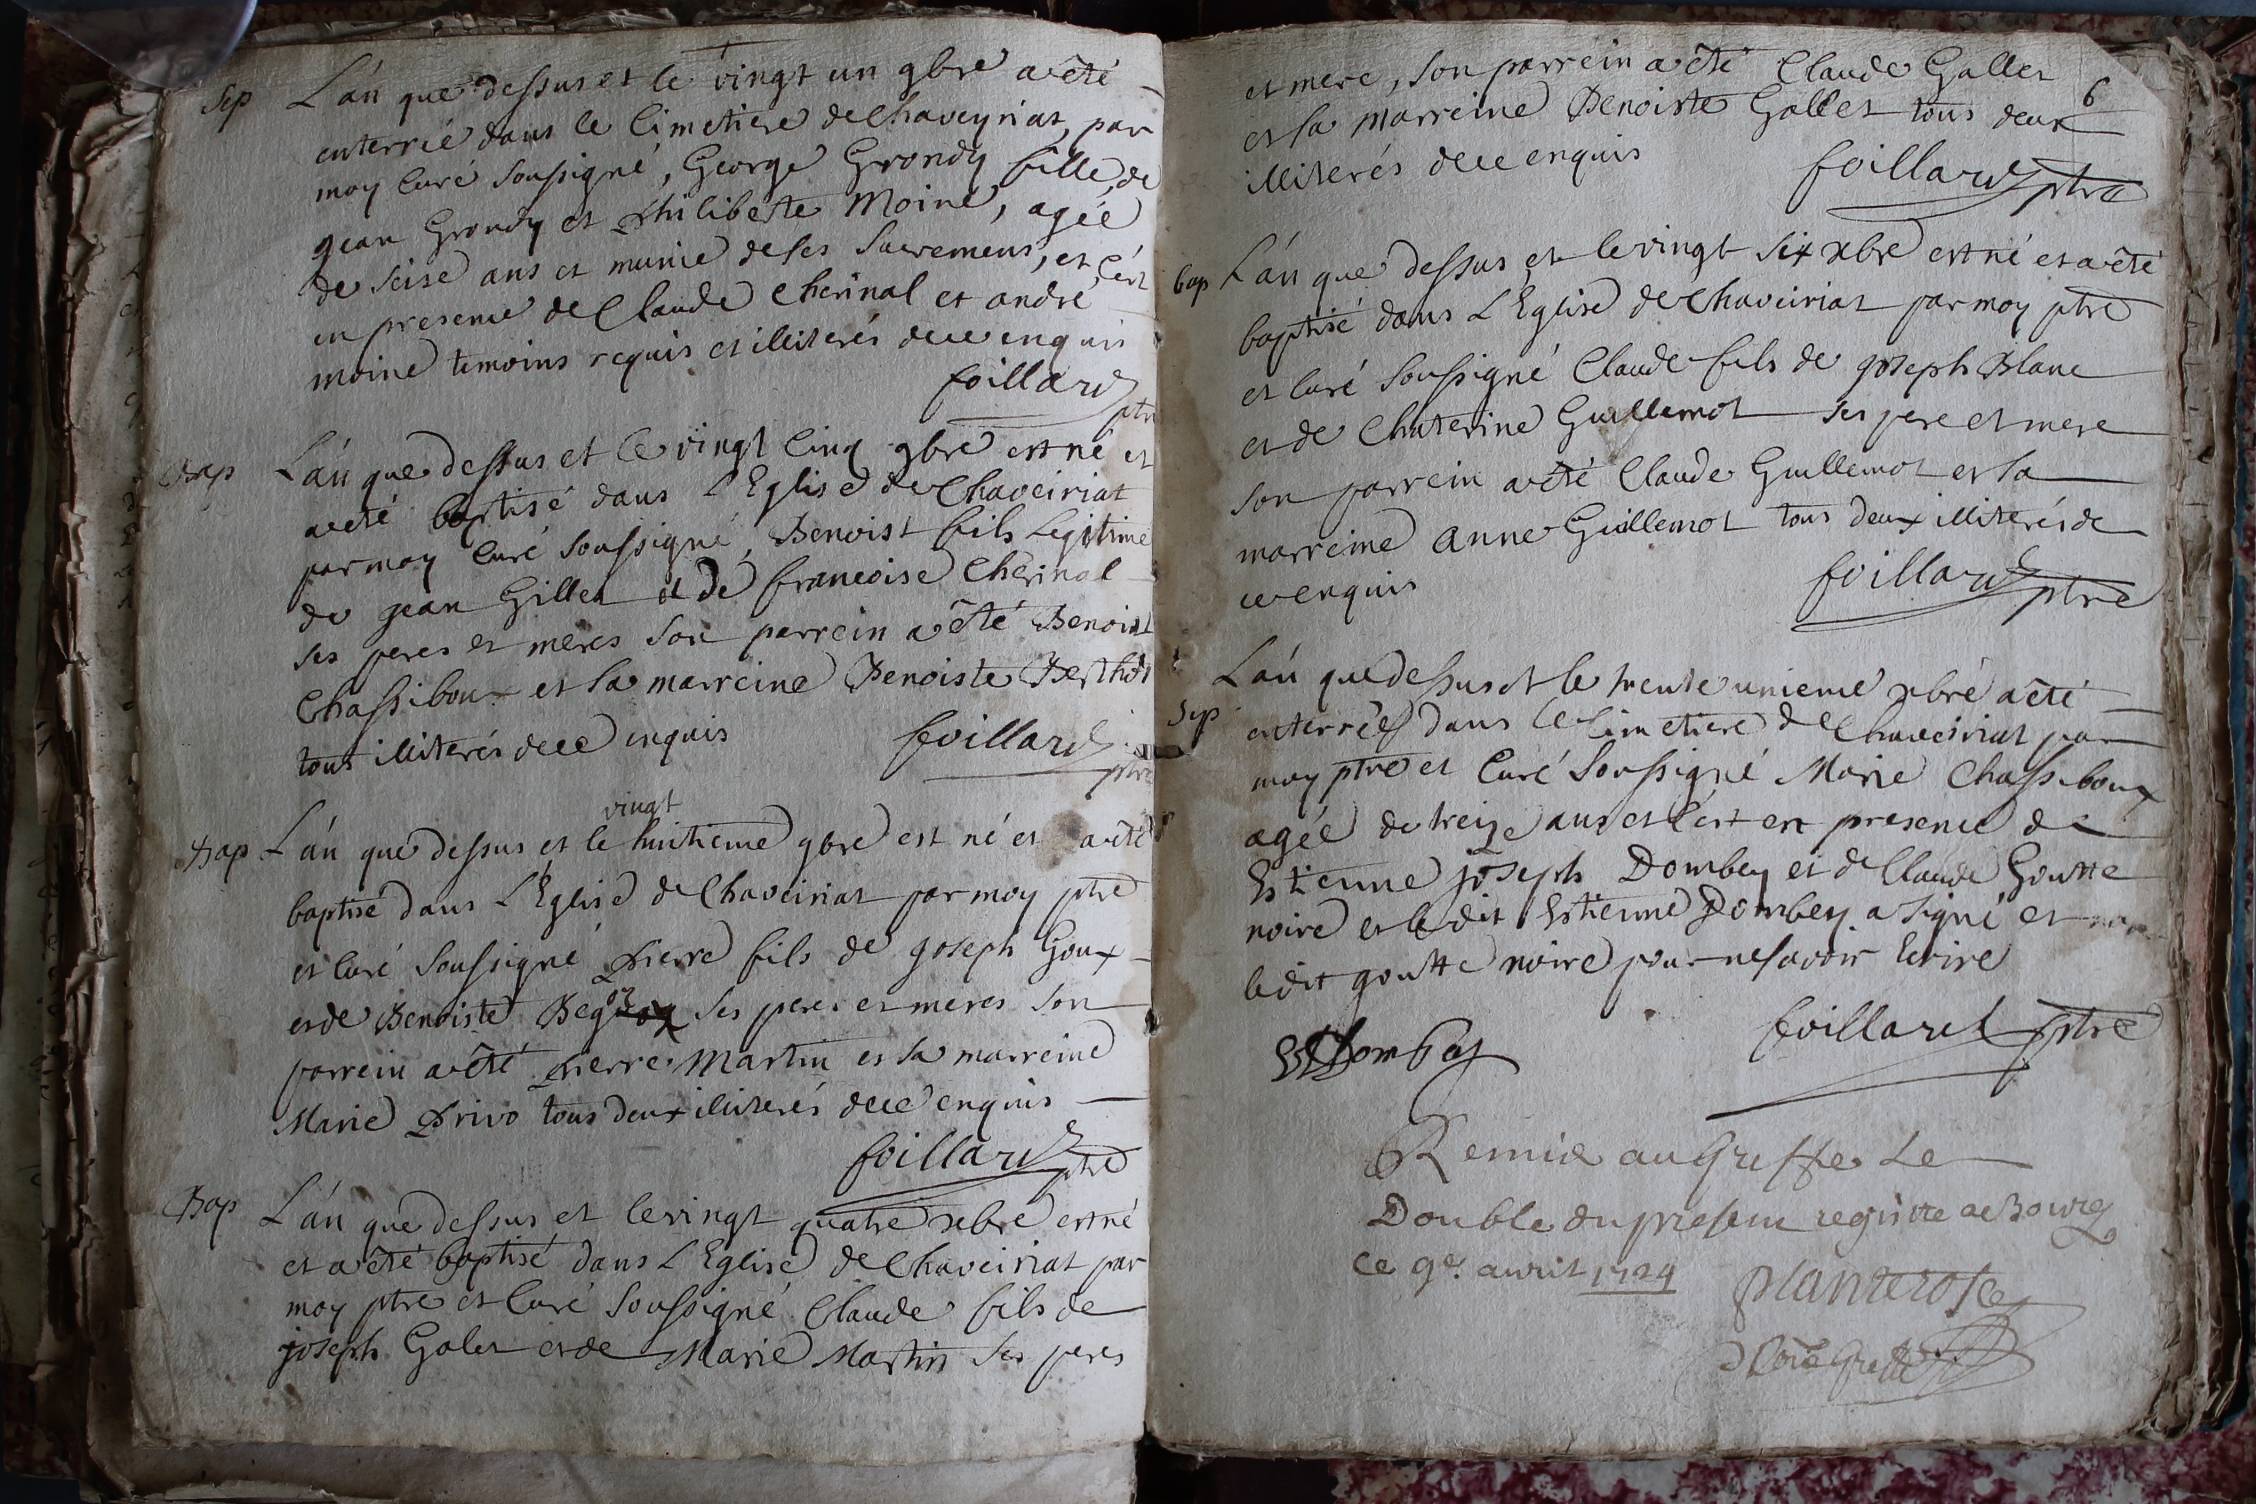 Sep L'an que dessus et le vingt un 9bre a été
enterrée dans le Cimetiere de Chaveyriat, par
moy Curé soussigné, George Grondy fille, de
jean Grondy et Philiberte Moine, agée
de seise ans et munie de ses sacremens, et c'ést
en presence de Claude Cherinal et andré
moine temoins requis et illiterés de ce enquis
foillard
ptre
Bap L'an que dessus et le vingt Cinq 9bre est né et
a eté baptisé dans l'Eglise de Chaveiriat
par moy Curé soussigné, Benoist fils Legitime
de jean Gillet et de francoise Cherinal
ses peres et meres son parrein a été Benoist
Chassiboux et sa marreine Benoiste Berthet
tous illiterés de ce enquis foillard
ptre
vingt
Bap L'an que dessus et le huitieme 9bre est né et a été
baptisé dans l'Eglise de Chaveiriat par moy ptre
et Curé soussigné Pierre fils de joseph Goux
et de Benoiste ses peres et meres son
parrein a été Pierre Martin et sa marreine
Marie Privo tous deux illiterés de ce enquis
foillard
ptre
Bap L'an que dessus et le vingt quatre xbre est né
et a été baptisé dans l'Eglise de Chaveiriat par
moy ptre et Curé soussigné Claude fils de
joseph Galet et de Marie Martin ses peres
6
et mere, son parrein a été Claude Gallet
et sa marreine Benoiste Gallet tous deux
illiterés de ce enquis foillard ptre
bap L'an que dessus et le vingt six xbre est né et a été
baptisé dans l'Eglise de Chaveiriat par moy ptre
et Curé soussigné Claude fils de joseph Blanc
et de Chaterine Guillemot ses pere et mere
son parrein a été Claude Guillemot et sa
marreine Anne Guillemot tous deux illiterés de
ce enquis foillard ptre
L'an que dessus et le trente unieme xbre a été
Sep enterrée dans le Cimetiere de Chaveiriat par
moy ptre et Curé soussigné Marie Chassiboux
agée de treize ans et c'est en presence de
Estienne joseph Dombey et de Claude Goutte
noire et le dit Estienne Dombey a signé et non
ledit goutte noire pour ne savoir Ecrire
Est Dombey foillard ptre
Remis au Greffe Le
Double du present registre a Bourg
Ce 9e. avril 1724 Planterose